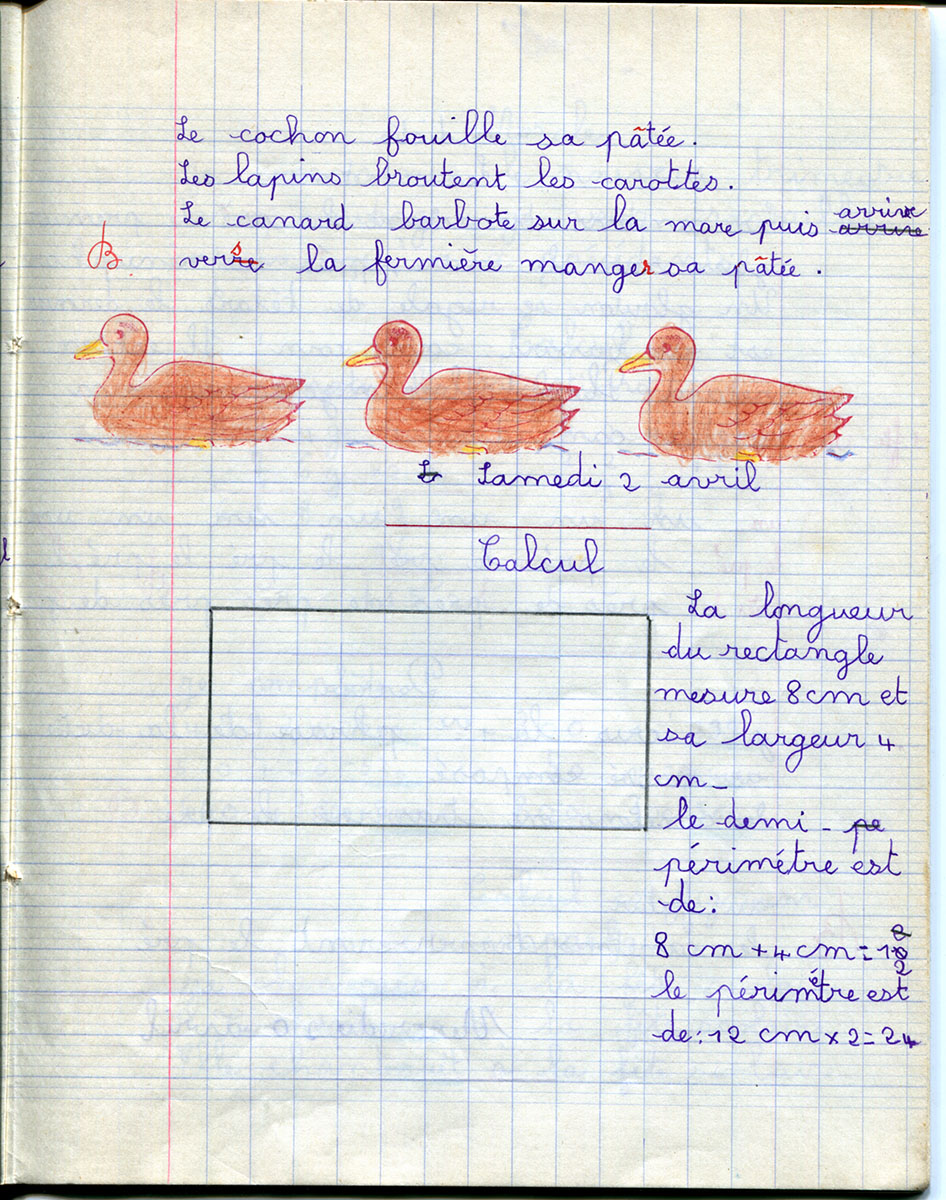 Le cochon fouille sa pâtée.
Les lapins broutent les carottes.
Le canard barbote sur la mare puis arrine arrive
B vers la fermière manger sa pâtée.
L Samedi 2 avril
Calcul
La longueur
du rectangle
mesure 8 cm et
sa largeur 4
cm_
le demi - pe
périmétre est
de:
8 cm + 4 cm = 12
le périmétre est
de: 12 cm x 2 = 24